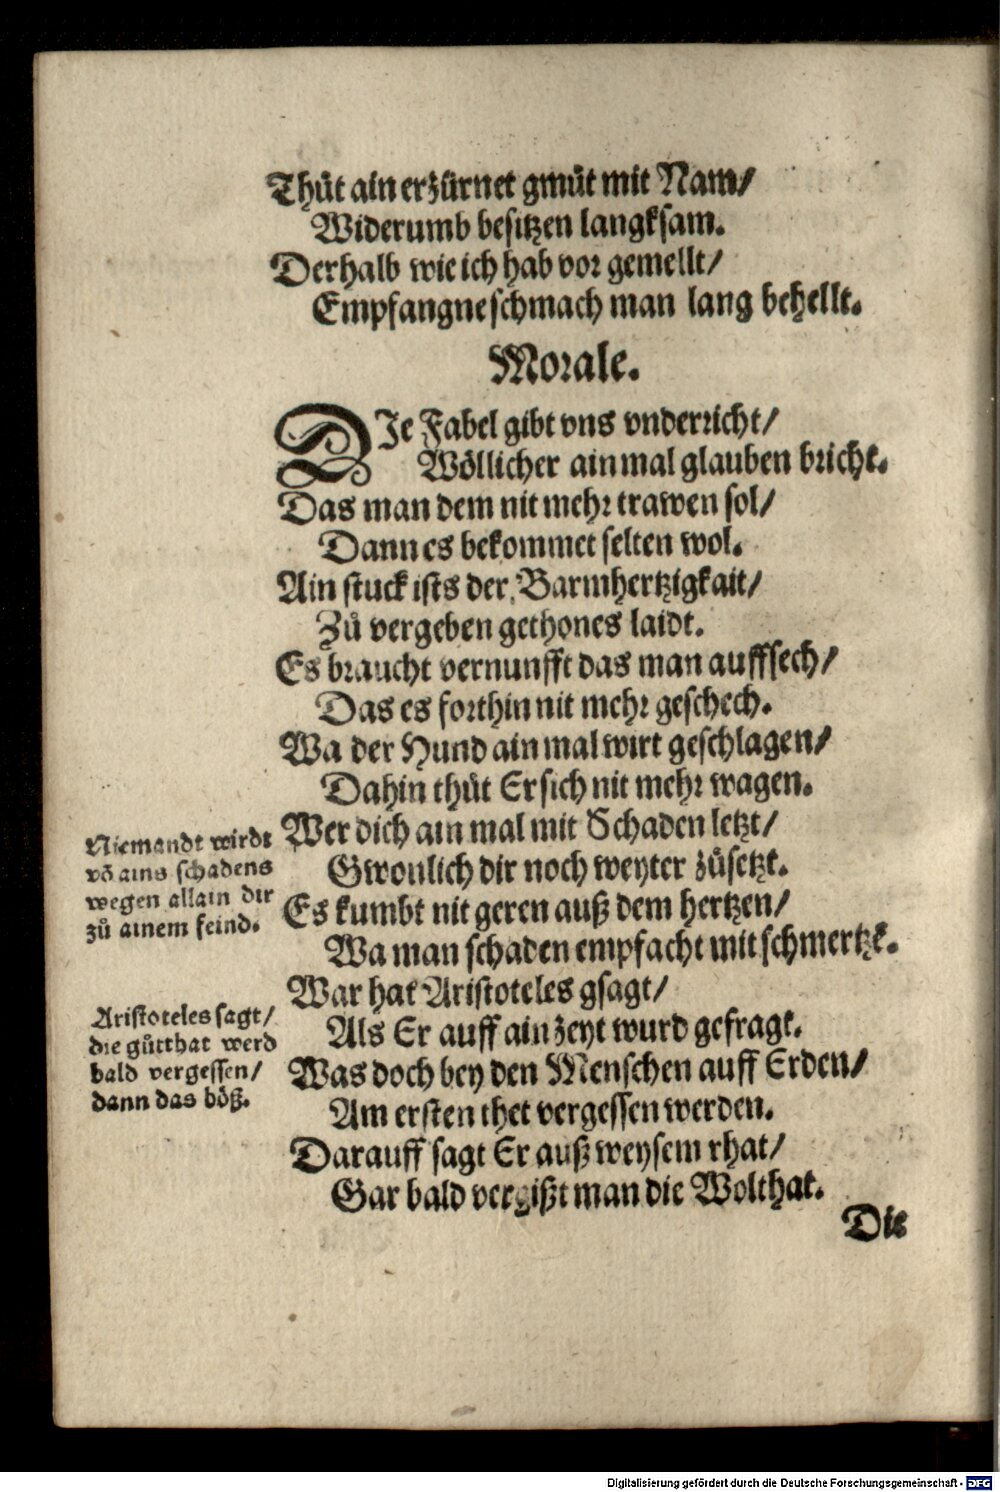 Thüt ain erzürnet gmüt mit Nam/
Widerumb besitzen langksam.
Derhalb wie ich hab vor gemellt/
Empfangne schmach man lang behellt.
Morale.
DIe Fabel gibt vns vnderricht/
Wöllicher ain mal glauben bricht.
Das man dem nit mehr trawen sol/
Dann es bekommet selten wol.
Ain stuck ists der Barmhertzigkait/
Zů vergeben gethones laidt.
Es braucht vernunfft das man auffsech/
Das es forthin nit mehr geschech.
Wa der Hund ain mal wirt geschlagen/
Dahin thüt Er sich nit mehr wagen.
Wer dich ain mal mit Schaden letzt/
Gwonlich dir noch weyter zůsetzt.
Es kumbt nit geren auß dem hertzen/
Wa man schaden empfacht mit schmertzt.
War hat Aristoteles gsagt/
Als Er auff ain zeyt wurd gefragt.
Was doch bey den Menschen auff Erden/
Am ersten thet vergessen werden.
Darauff sagt Er auß weysem rhat/
Gar bald vergißt man die Wolthat.
Die
Niemandt wirdt
vō ains schadens
wegen allain dir
zů ainem feind.
Aristoteles sagt/
die gůtthat werd
bald vergessen/
dann das böß.
Digitalisierung gefördert durch die Deutsche Forschungsgemeinschaft - DFG